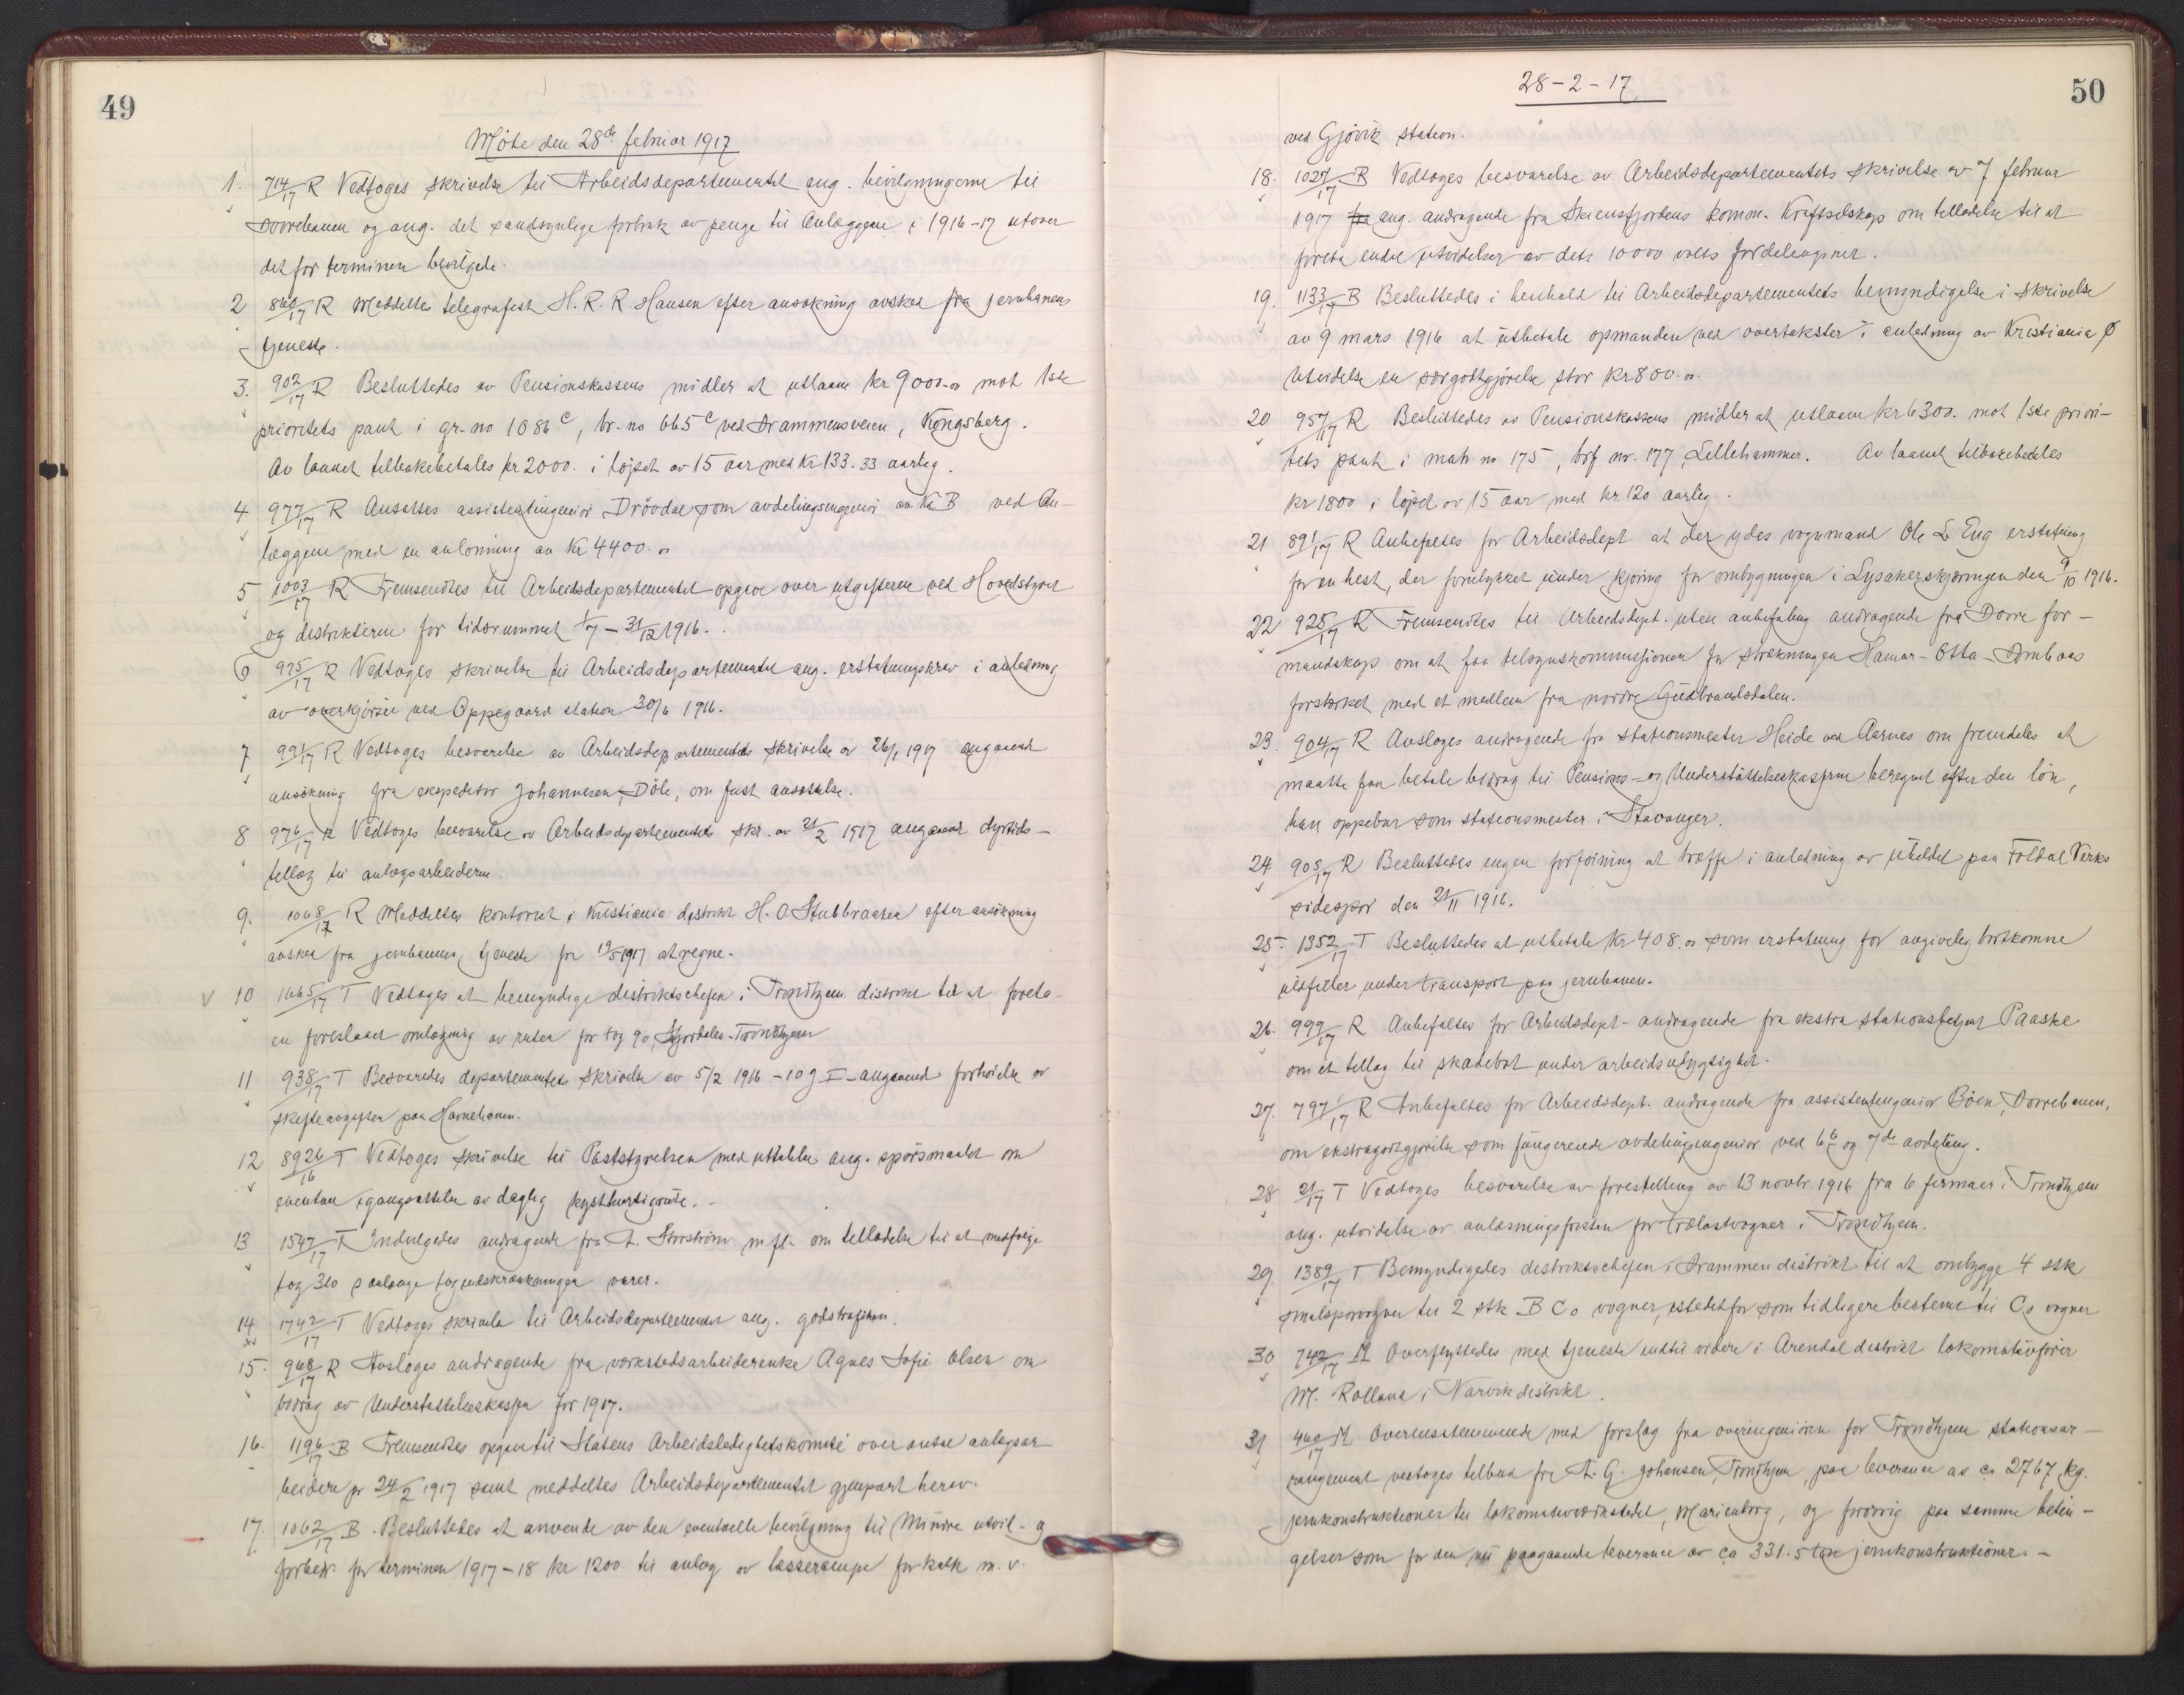 49
Möte den 28de februar 1917
1. 714/17 R Vedtoges skrivelse til Arbeidsdepartementet ang. bevilgningerne til
Dovrebanen og ang. det sandsynlige forbruk av penge til Anlæggene i 1916-17 utover
det for terminen bevilgede.
2 860/17 R Meddeltes telegrafist H. R. R. Hansen efter ansökning avsked fra jernbanens
tjeneste.
3. 902/17 R Besluttedes av Pensionskassens midler at utlaane kr 9000.00 mot 1ste
prioritets pant i gr. no 1086c, br. no 665c ved Drammensveien, Kongsberg.
Av laanet tilbakebetales kr 2000. i löpet av 15 aar med kr 133.33 aarlig.
4 977/17 R Ansattes assistentingeniör Drövdal som avdelingsingeniör av kl B ved An-
læggene med en avlönning av kr 4400.00
5 1003/17 R Fremsendtes til Arbeidsdepartementet opgave over utgifterne ved Hovedstyret
og distrikterne for tidsrummet 1/7 - 31/12 1916.
6 975/17 R Vedtoges skrivelse til Arbeidsdepartementet ang. erstatningskrav i anledning
av overkjörsel ved Oppegaard station 30/6 1916.
7 991/17 R Vedtoges besvarelse av Arbeidsdepartementets skrivelse av 26/1 1917 angaaende
ansökning fra ekspeditör Johannesen, Döle, om fast ansættelse.
8 976/17 R Vedtoges besvarelse av Arbeidsdepartementets skr. av 21/2 1917 angaaende dyrtids-
tillæg til anlægsarbeiderne.
9. 1068/17 R Meddeltes kontorist i Kristiania distrikt H. O. Stubbraaten efter ansökning
avsked fra jernbanens tjeneste fra 19/5 1917 at regne.
v 10 1665/17 T Vedtoges at bemyndige distriktschefen i Trondhjem distrikt til at foreta
en foreslaaet omlægning av ruten for tog 90, Stjördalen-Trondhjem
11 938/17 T Besvaredes departementets skrivelse av 5/2 1916 - 10 J I - angaaende forhöielse av
skifteavgiften paa Havnebanen.
12 8926/16 T Vedtoges skrivelse til Poststyrelsen med uttalelse ang. spörsmaalet om
eventuel igangsættelse av daglig kysthurtigrute. -
13 1547/17 T Indvilgedes andragende fra L. Storström m.fl. om tilladelse til at medfölge
tog 310 saalænge togindskrænkningen varer.
14 1742/17 T Vedtoges skrivelse til Arbeidsdepartementet ang. godstrafiken.
15. 968/17 R Avsloges andragende fra verkstedsarbeiderenke Agnes Sofie Olsen om
bidrag av Understöttelseskassen for 1917.
16. 1196/17 B Fremsendtes opgave til Statens Arbeidsledighetskomité over antal anlægsar-
beidere pr 24/2 1917 samt meddeltes Arbeidsdepartementet gjenpart herav.
17. 1062/17 B. Besluttedes at anvende av den eventuelle bevilgning til Mindre utvid- og
forbedr. for terminen 1917-18 kr 1200 til anlæg av lasserampe for kalk m. v.
28-2-17
50
ved Gjövik station.
18. 1027/17 B Vedtoges besvarelse av Arbeidsdepartementets skrivelse av 7 februar
1917 fra ang. andragende fra Skiensfjordens komm. Kraftselskap om tilladelse til at
foreta endel utvidelser av dets 10000 volts fordelingsnet.
19. 1133/17 B Besluttedes i henhold til Arbeidsdepartementets bemyndigelse i skrivelse
av 9 mars 1916 at utbetale opmanden ved overtakster i anledning av Kristiania Ø
utvidelse en særgodtgjörelse stor kr 800.00.
20 957/17 R Besluttedes av Pensionskassens midler at utlaane kr 6300. mot 1ste priori-
tets pant i matr no 175, brf nr. 177, Lillehammer. Av laanet tilbakebetales
kr 1800 i löpet av 15 aar med kr. 120 aarlig.
21 891/17 R Anbefaltes for Arbeidsdept. at der ydes vognmand Ole L. Eug erstatning
for en hest, der forulykket under kjöring for ombygningen i Lysakerskjæringen den 9/10 1916.
22 928/17 R Fremsendtes til Arbeidsdept. uten anbefaling andragende fra Dovre for-
mandskap om at faa tilsynskommissionen for strækningen Hamar-Otta-Dombaas
forsterket med et medlem fra nordre Gudbrandsdalen.
23. 904/17 R Avsloges andragende fra stationsmester Heide ved Aarnes om fremdeles at
maatte faa betale bidrag til Pensions- og Understöttelseskassene beregnet efter den lön,
han oppebar som stationsmester i Stavanger.
24 905/17 R Besluttedes ingen forföining at træffe i anledning av uheldet paa Foldal Verks
sidespor den 21/11 1916.
25. 1352/17 T Besluttedes at utbetale kr 408.00 som erstatning for angivelig bortkomne
uldfiller under transport paa jernbanen.
26. 999/17 R Anbefaltes for Arbeidsdept - andragende fra ekstra stationsbetjent Paaske
om et tillæg til skadebot under arbeidsudygtighet.
27. 797/17 R Anbefaltes for Arbeidsdept. andragende fra assistentingeniör Böen, Dovrebanen,
om ekstragodtgjörelse som fungerende avdelingsingeniör ved 6te og 7de avdeling.
28 21/17 T Vedtoges besvarelse av forestilling av 13 novbr 1916 fra 6 firmaer i Trondhjem
ang. utvidelse av avlæsningsfristen for trælastvogner i Trondhjem.
29 1389/17 T Bemyndigedes distriktschefen i Drammen distrikt til at ombygge 4 stk
smalsporvogner til 2 stk B Co vogner, istedetfor som tidligere bestemt til Co vogner
30 742/17 M Overflyttedes med tjeneste indtil videre i Arendal distrikt lokomotivförer
M. Rolland i Narvik distrikt.
31 460/17 M Overensstemmende med forslag fra overingeniören for Trondhjem stationsar-
rangement vedtoges tilbud fra L. G. Johansen, Trondhjem, paa leverance av ca 2767 kg.
jernkonstruktioner til lokomotivverkstedet, Marienborg, og forövrig paa samme betin-
gelser som for den nu paagaaende leverance av ca 331.5 ton jernkonstruktioner. -